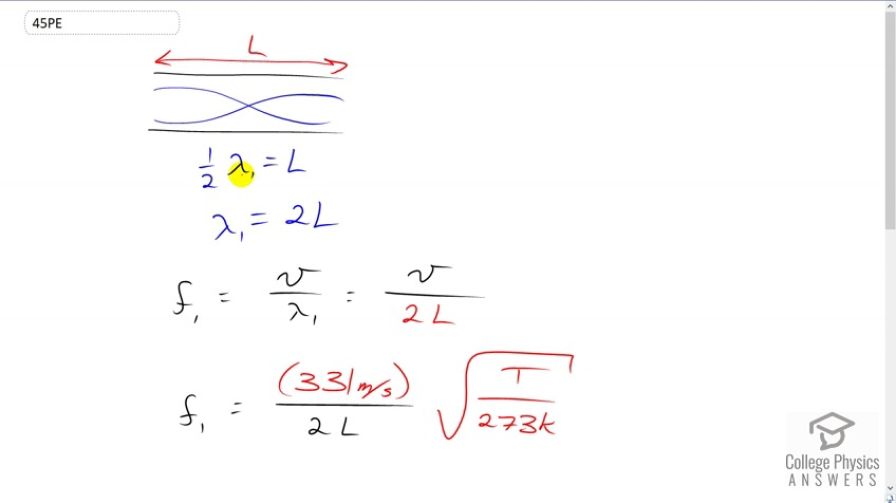 45PE
L
1/2 λ₁ = L
λ₁ = 2L
f₁ = v/λ₁ = v/2L
f₁ = (331 m/s)/2L √(T/273K)
College Physics
ANSWERS